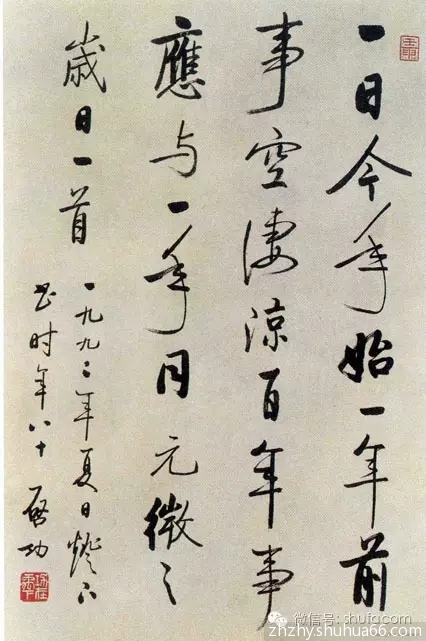 一日今年始一年前
事空淒涼百年事
應与一年同元微之
歲日一首
一九九二年夏日燈下
书时年八十 啟功
微信号:
zhzhyshuhua66.com